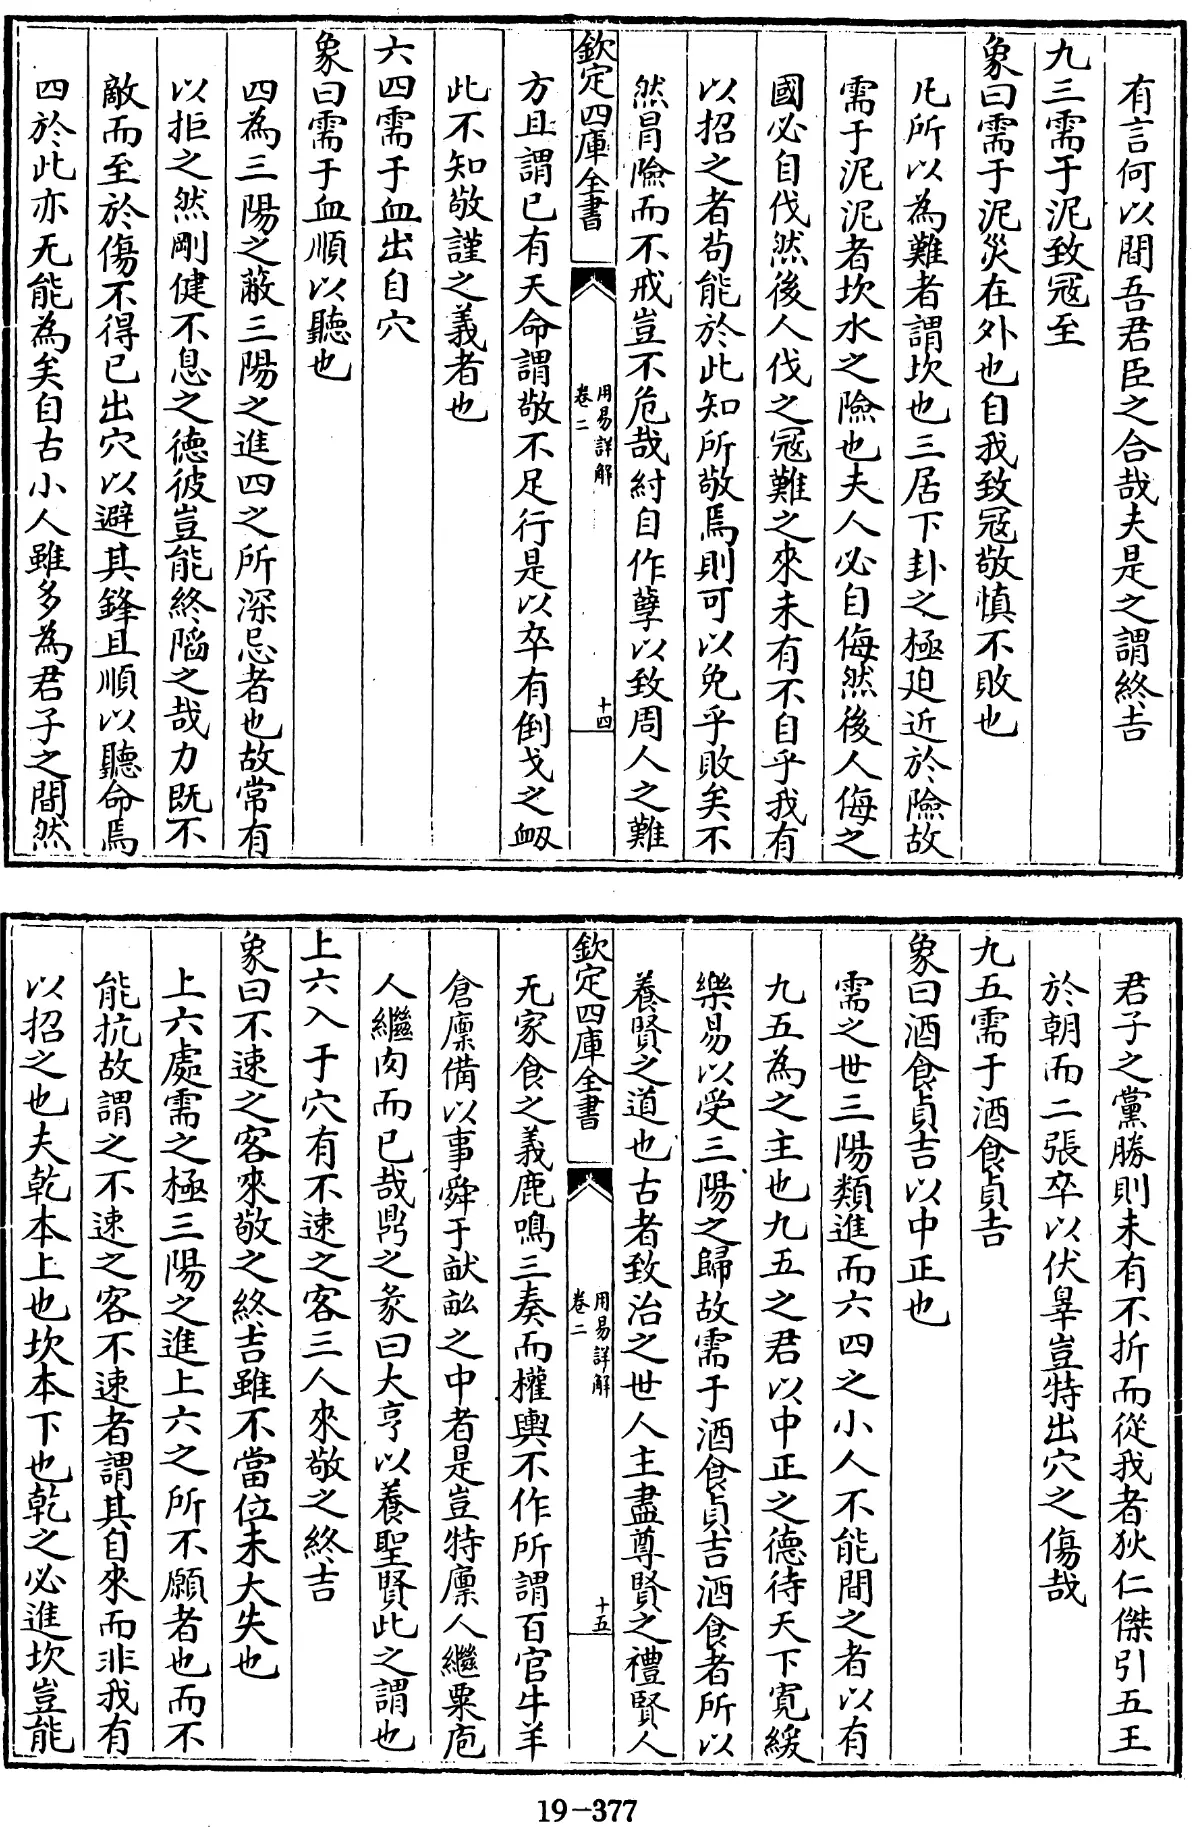 有言何以間吾君臣之合哉夫是之謂終吉
九三需于泥致冦至
象曰需于泥災在外也自我致冦敬慎不敗也
凡所以為難者謂坎也三居下卦之極迫近於險故
需于泥泥者坎水之險也夫人必自侮然後人侮之
國必自伐然後人伐之冦難之來未有不自乎我有
以招之者茍能於此知所敬焉則可以免乎敗矣不
然冐險而不戒豈不危哉紂自作孽以致周人之難
欽定四庫全書
用易詳解
卷二
十四
方且謂已有天命謂敬不足行是以卒有倒戈之衂
此不知敬謹之義者也
六四需于血出自穴
象曰需于血順以聽也
四為三陽之蔽三陽之進四之所深忌者也故常有
以拒之然剛健不息之德彼豈能終陷之哉力既不
敵而至於傷不得已出穴以避其鋒且順以聽命焉
四於此亦无能為矣自古小人雖多為君子之間然
君子之黨勝則未有不折而從我者狄仁傑引五王
於朝而二張卒以伏辠豈特出穴之傷哉
九五需于酒食貞吉
象曰酒食貞吉以中正也
需之世三陽類進而六四之小人不能間之者以有
九五為之主也九五之君以中正之德待天下寛緩
樂易以受三陽之歸故需于酒食貞吉酒食者所以
養賢之道也古者致治之世人主盡尊賢之禮賢人
欽定四庫全書
用易詳解
卷二
十五
无家食之義鹿鳴三奏而權輿不作所謂百官牛羊
倉廩備以事舜于畎畝之中者是豈特廩人繼粟庖
人繼肉而已哉鼎之彖曰大亨以養聖賢此之謂也
上六入于穴有不速之客三人來敬之終吉
象曰不速之客來敬之終吉雖不當位未大失也
上六處需之極三陽之進上六之所不願者也而不
能抗故謂之不速之客不速者謂其自來而非我有
以招之也夫乾本上也坎本下也乾之必進坎豈能
19-377